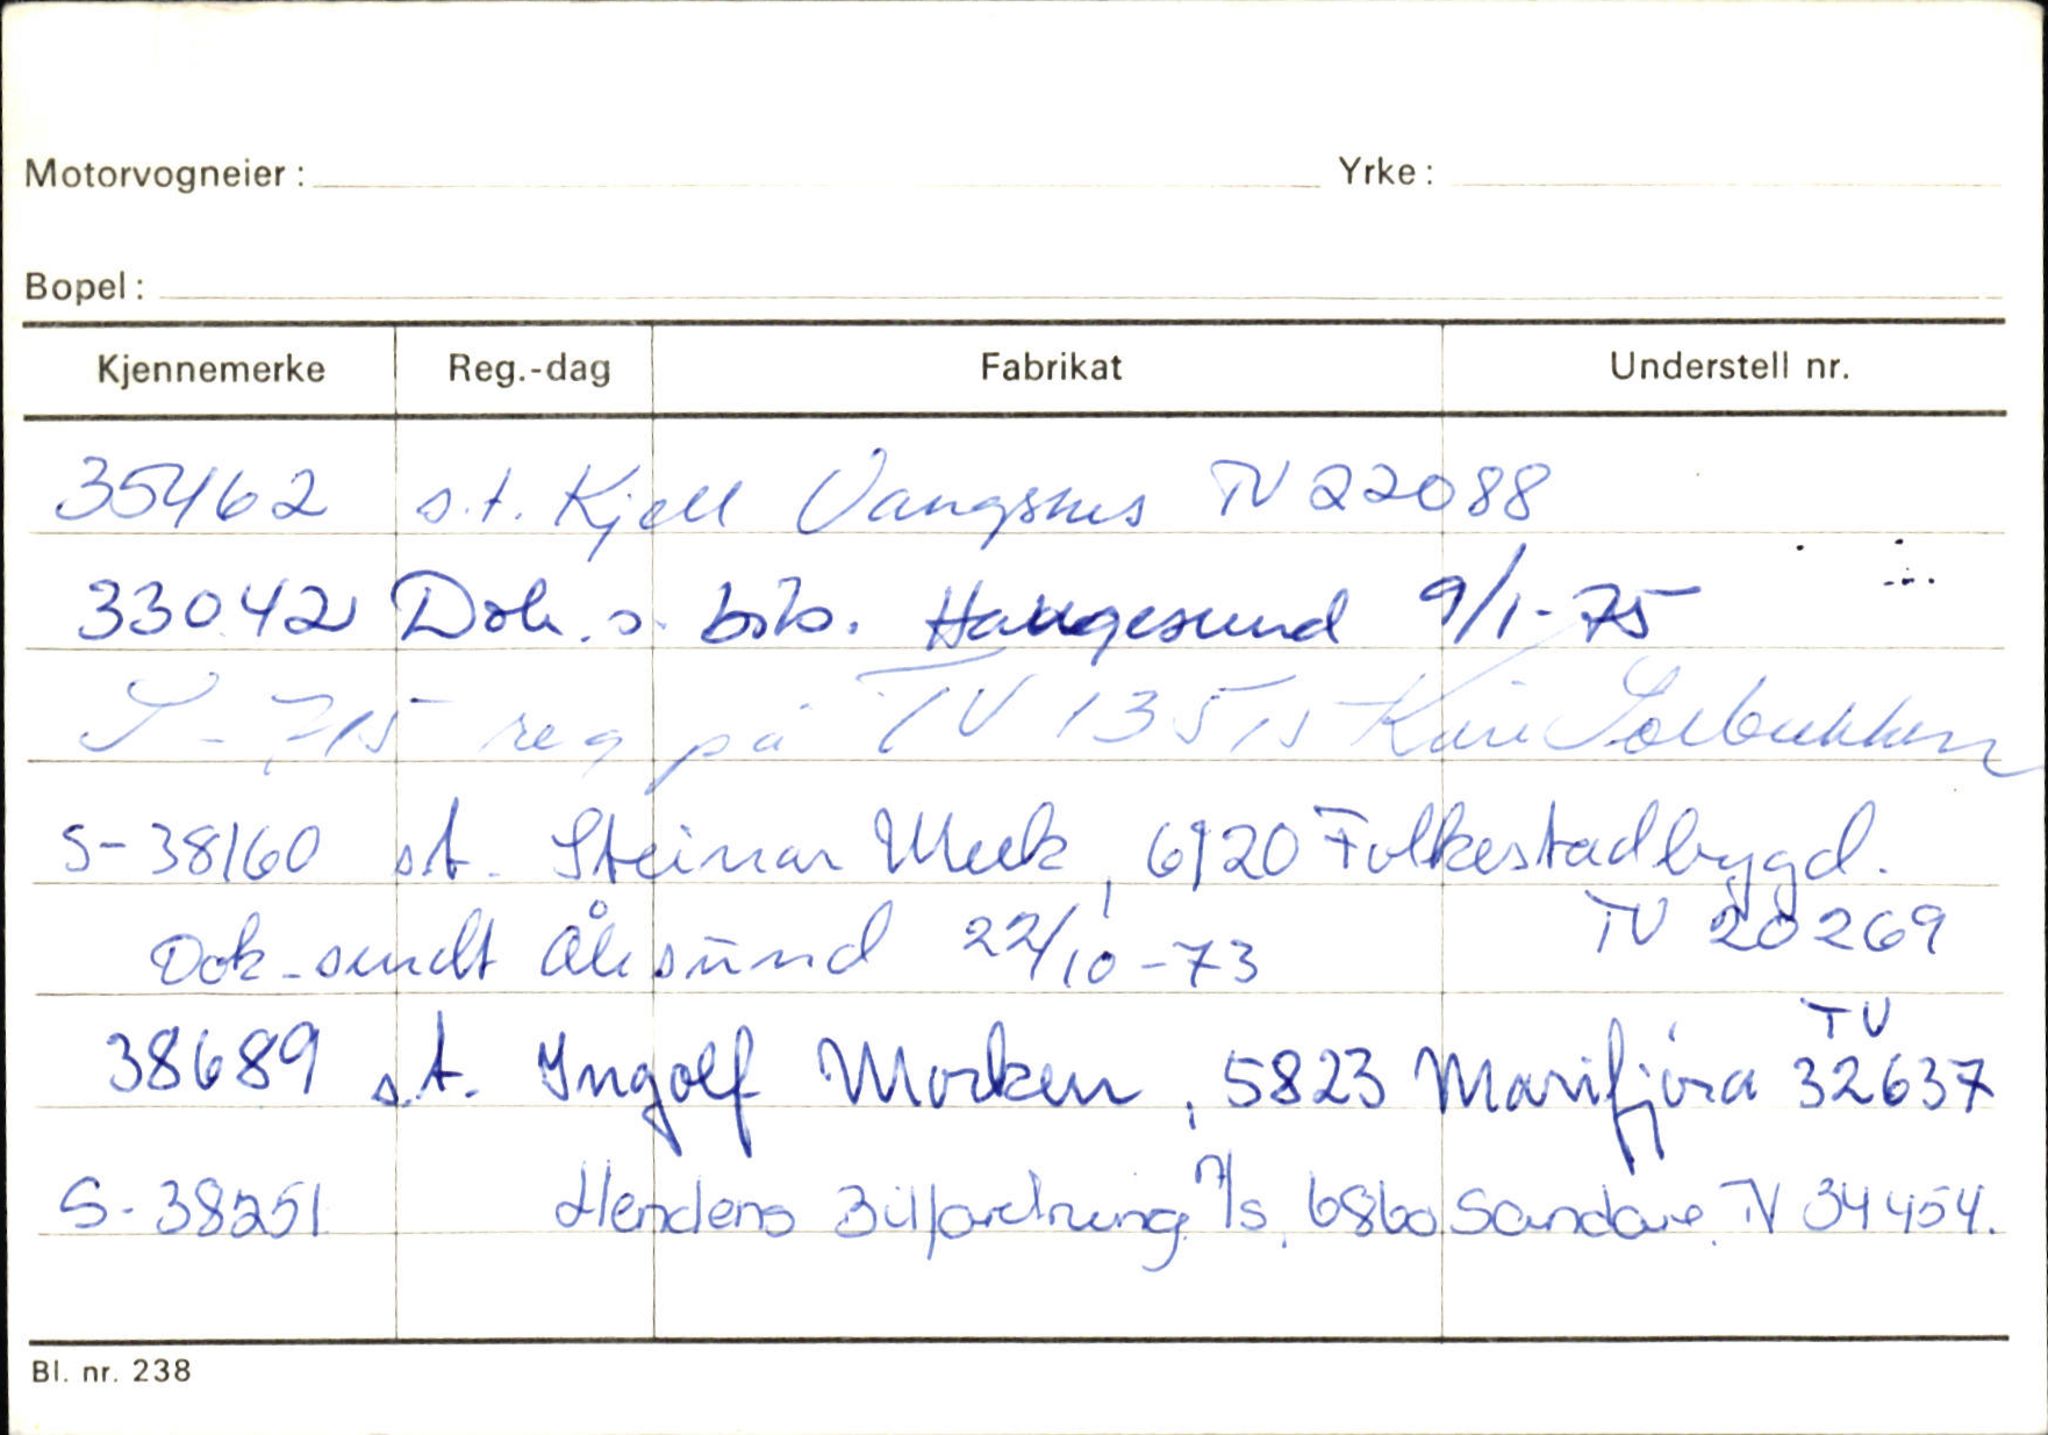 Motorvogneier: Yrke:
Bopel:
Kjennemerke Reg.-dag Fabrikat Understell nr.
35462 s.t. Kjell Vangsnes TV 22088
33042 Dok. s. bils. Haugesund 9/1-75
S-715 reg på TV 13515 Kåre Solbakken
S-38160 s.t. Steinar Meek, 6120 Folkestadbygd.
Dok-sendt Ålesund 22/10-73 TV 20269
38689 s.t. Ingolf Morken, 5823 Marifjøra TV 32637
S-38251 Hendens Bilforretning A/S, 6860 Sandane. TV 34454.
Bl. nr. 238